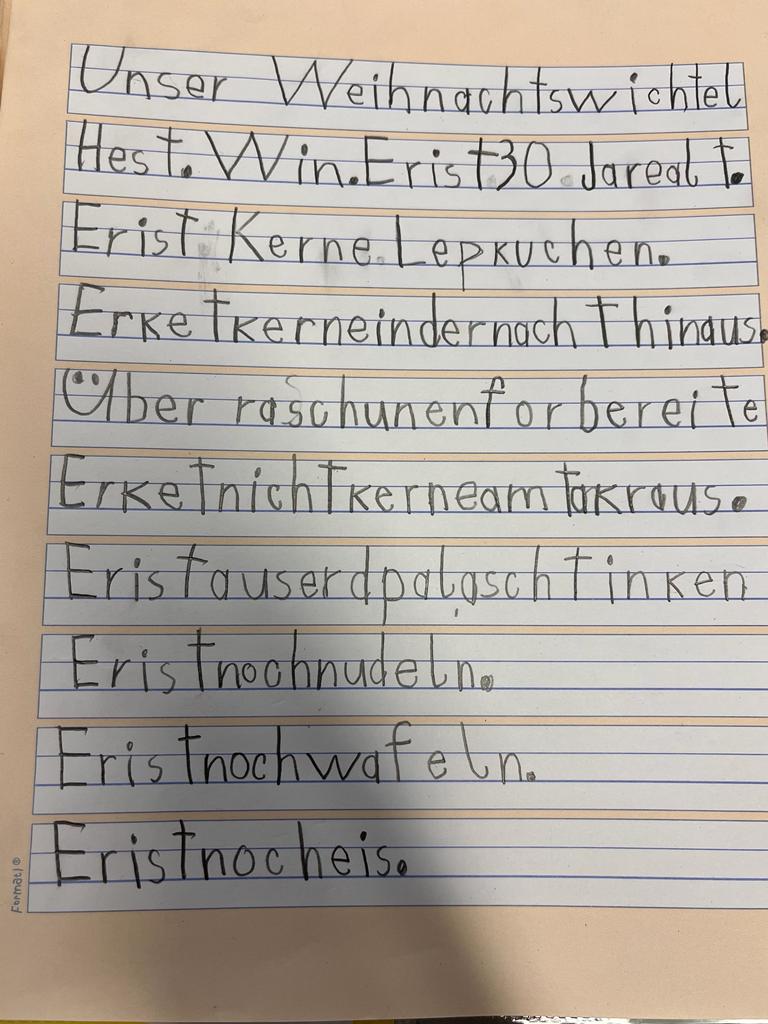 Unser Weihnachtswichtel
Hest. Win. Erist 30. Jarealt.
Erist Kerne Lepkuchen.
Erketkerneindernachthinaus.
Überraschunenforbereite
Erketnichtkerneamtakraus.
Eristauserdpalaschtinken
Eristnochnudeln.
Eristnochwafeln.
Eristnocheis.
Formati®